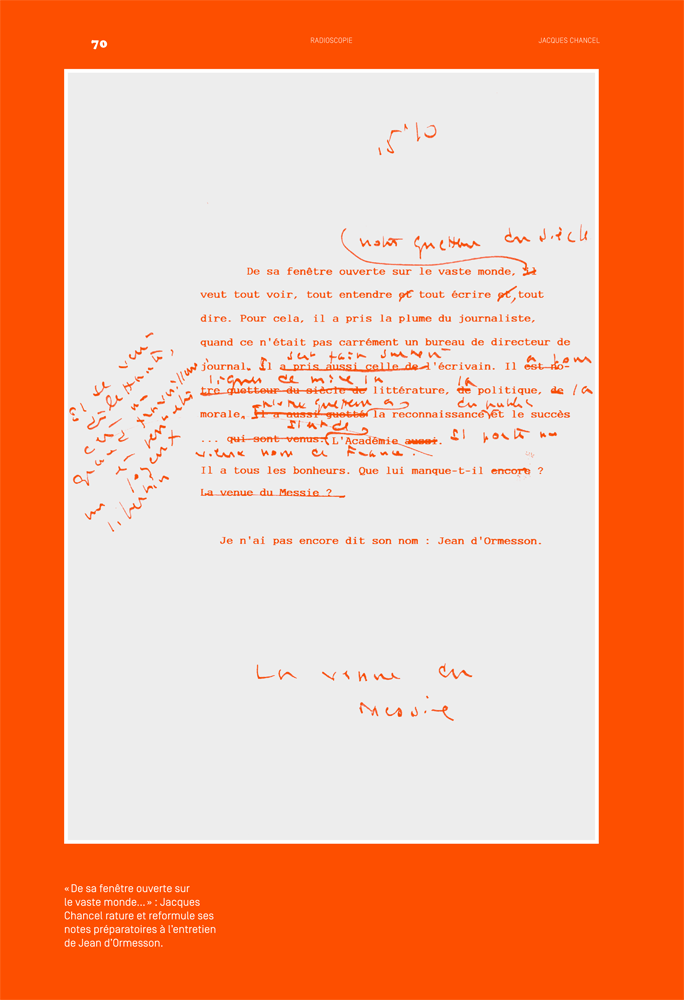 70
RADIOSCOPIE
JACQUES CHANCEL
15'10
notre guetteur du siècle
De sa fenêtre ouverte sur le vaste monde, il
veut tout voir, tout entendre et tout écrire et tout
dire. Pour cela, il a pris la plume du journaliste,
quand ce n'était pas carrément un bureau de directeur de
journal. Il a pris aussi celle de l'écrivain. Il est no-
tre guetteur du siècle de littérature, de politique, de la
morale. Il a aussi guetté la reconnaissance et le succès
... qui sont venus. L'Académie aussi. Il porte un
vieux nom de France.
Il a tous les bonheurs. Que lui manque-t-il encore ?
La venue du Messie ?
Je n'ai pas encore dit son nom : Jean d'Ormesson.
La venue du
Messie
« De sa fenêtre ouverte sur
le vaste monde… » : Jacques
Chancel rature et reformule ses
notes préparatoires à l'entretien
de Jean d'Ormesson.